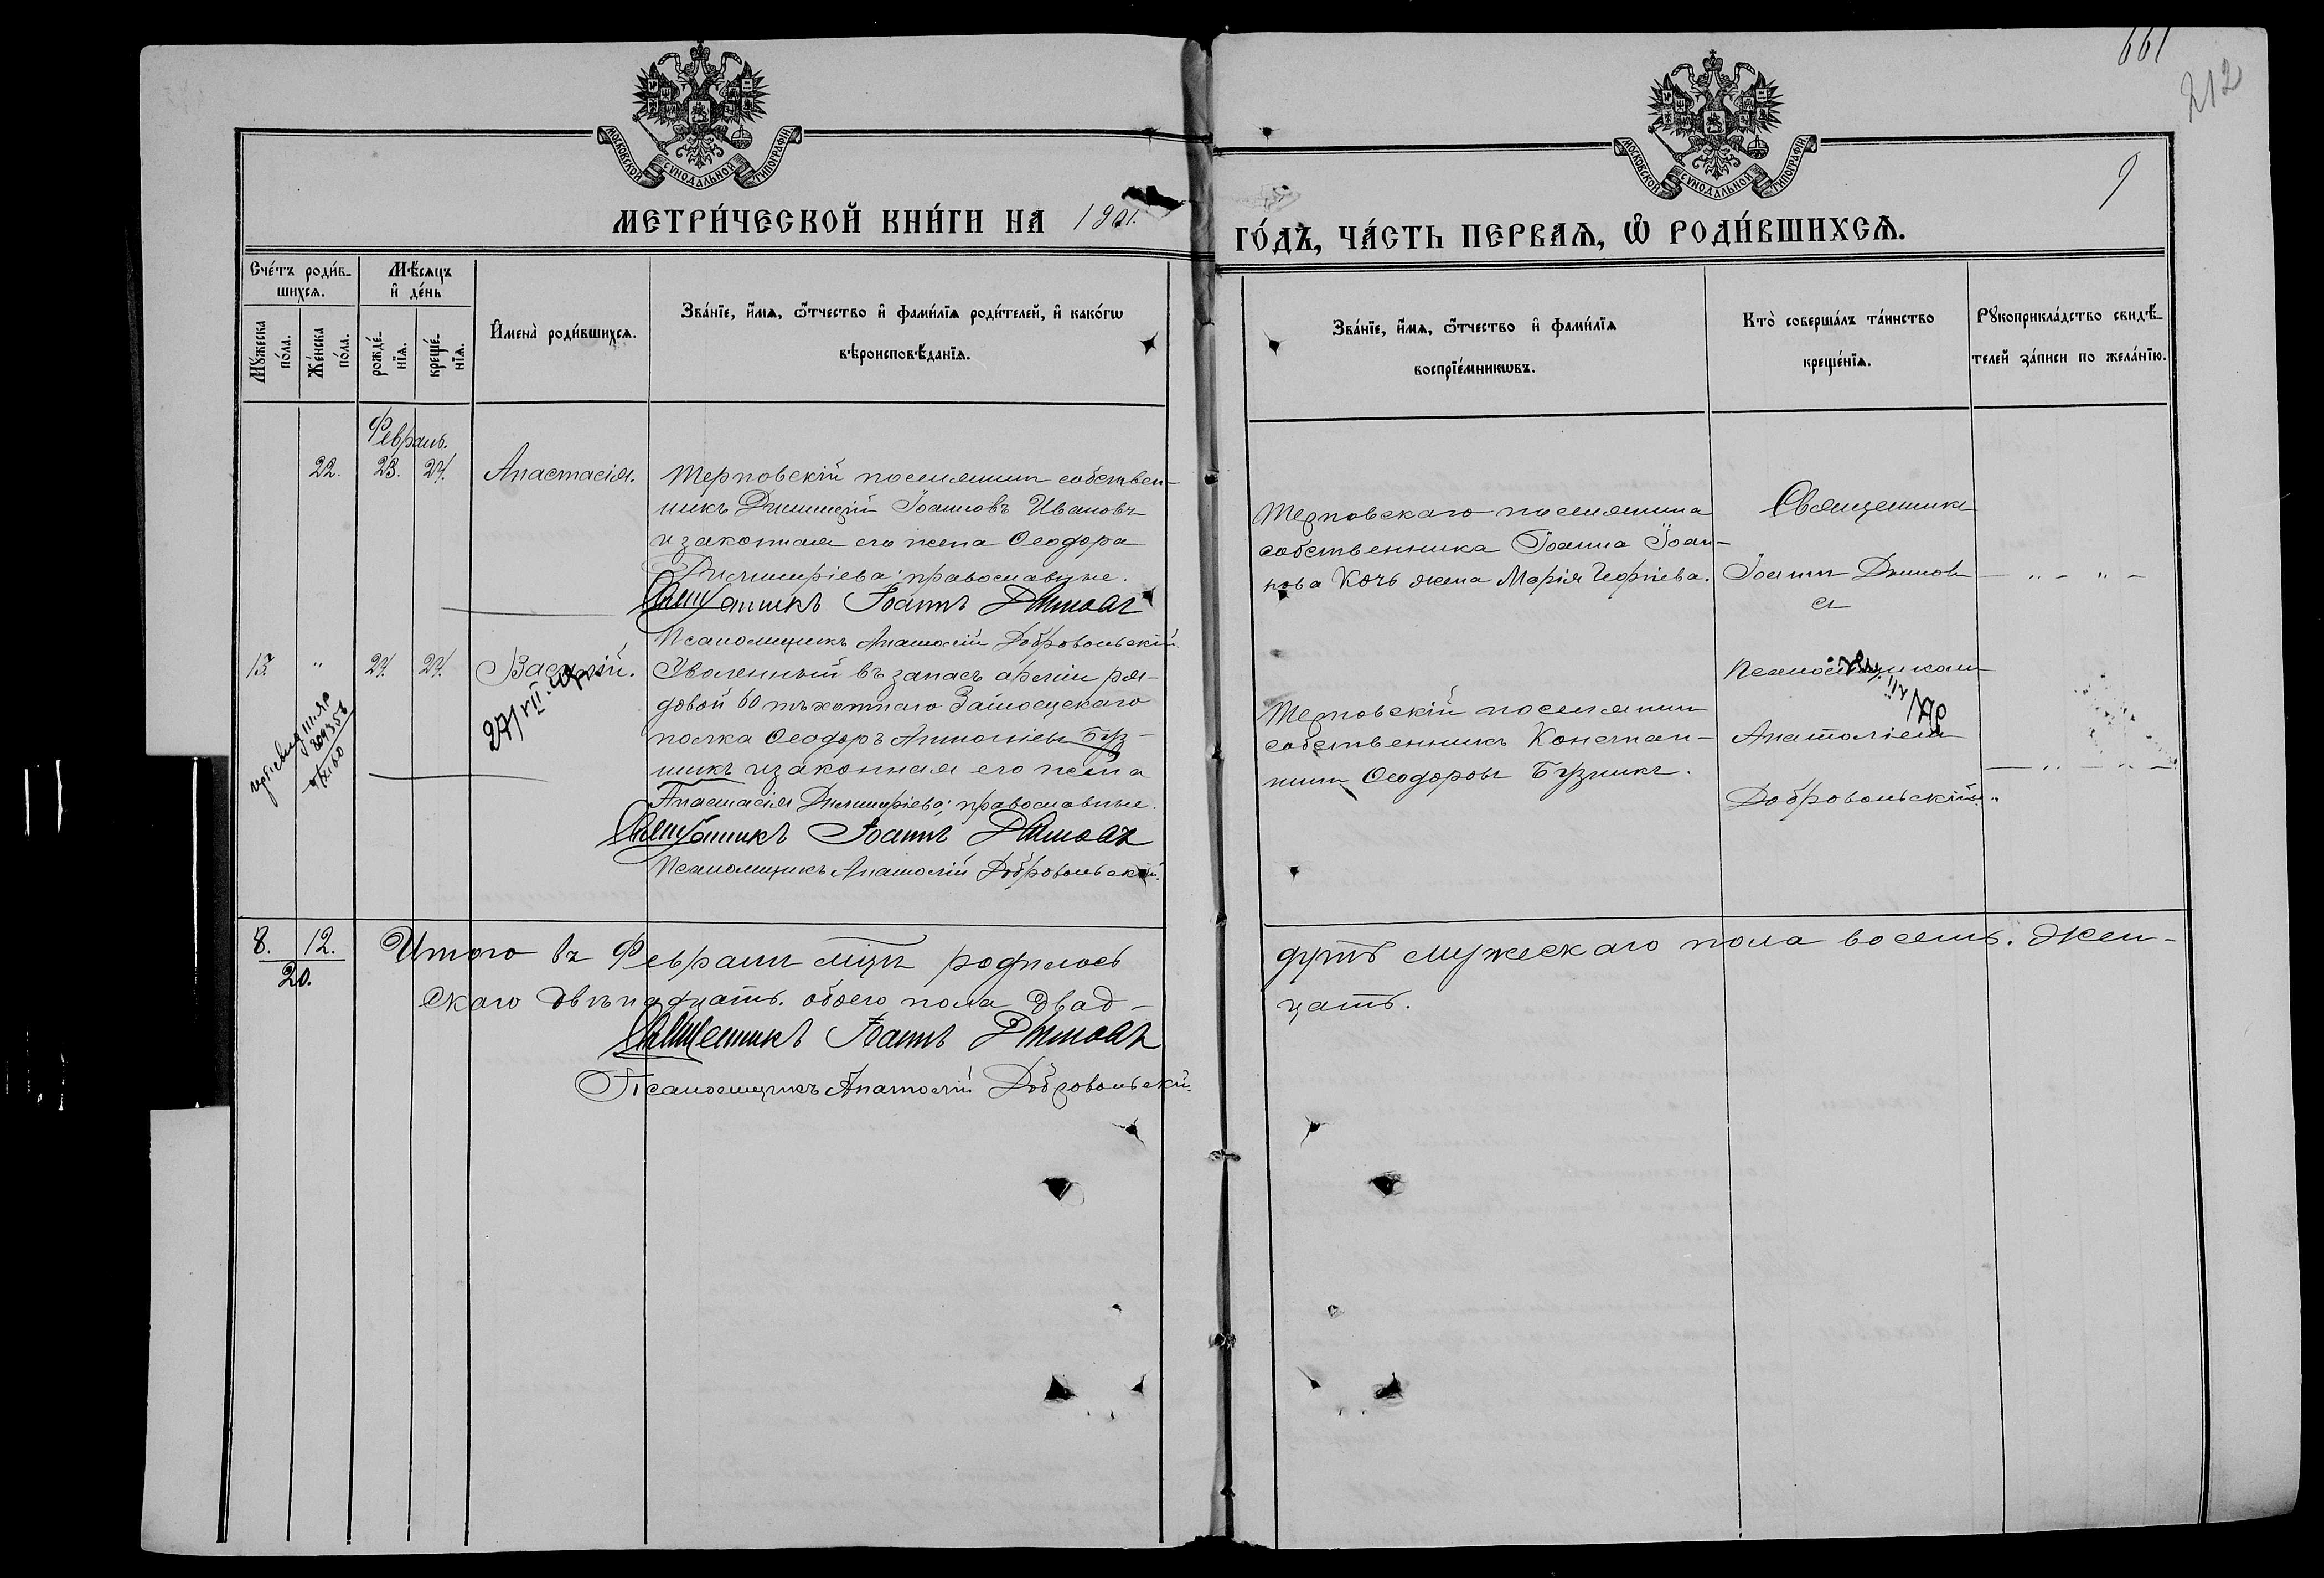 661
212
9
МОСКОВСКОЙ СѴНОДАЛЬНОЙ ТИПОГРАФІИ
МОСКОВСКОЙ СѴНОДАЛЬНОЙ ТИПОГРАФІИ
МЕТРИ́ЧЕСКОЙ КНИ́ГИ НА 1901.
ГО́ДЪ, ЧА́СТЬ ПЕРВАѦ, Ѡ҆ РОДИ́ВШИХСѦ.
Сче́тъ роди́в-
шихсѧ.
Мѣ́сѧцъ
и҆ де́нь
Мꙋжеска
по́ла.
Же́нска
по́ла.
рожде́-
нїѧ.
креще́-
нїѧ.
И҆мена̀ роди́вшихсѧ.
Зва́нїе, и҆́мѧ, ѻ҆́тчество и҆ фами́лїѧ роди́телей, и҆ како́гѡ
вѣроисповѣ́данїѧ.
Зва́нїе, и҆́мѧ, ѻ҆́тчество и҆ фами́лїѧ
воспрїе́мникѡвъ.
Кто̀ соверша́лъ та́инство
креще́нїѧ.
Рꙋкоприкла́дство свидѣ́-
телей за́писи по жела́нїю.
Февраль.
22. 23. 24. Анастасія.
Терновскій поселянинъ собствен-
никъ Димитрій Іоанновъ Ивановъ
и законная его жена Ѳеодора
Димитріева; православные.
Священникъ Іоаннъ Димовъ
Псаломщикъ Анатолій Добровольскій.
Терновскаго поселянина
собственника Іоанна Іоан-
нова Кочь жена Марія Георгіева.
Священникъ
Іоаннъ Димовъ
съ
Псаломщикомъ
Анатоліемъ
Добровольскимъ.
13. " 24. 24. Василій.
27/VII
Уволенный въ запасъ арміи ря-
довой 60 пѣхотнаго Замосцскаго
полка Ѳеодоръ Антоніевъ Буз-
никъ и законная его жена
Анастасія Димитріева; православные.
Священникъ Іоаннъ Димовъ
Псаломщикъ Анатолій Добровольскій.
Терновскій поселянинъ
собственникъ Констан-
тинъ Ѳеодоровъ Бузникъ.
8. 12.
20.
Итого въ Февралѣ мцѣ родилось
дѣтей мужескаго пола восемь. Жен-
скаго двѣнадцать. обоего пола двад-
цать.
Священникъ Іоаннъ Димовъ
Псаломщикъ Анатолій Добровольскій.